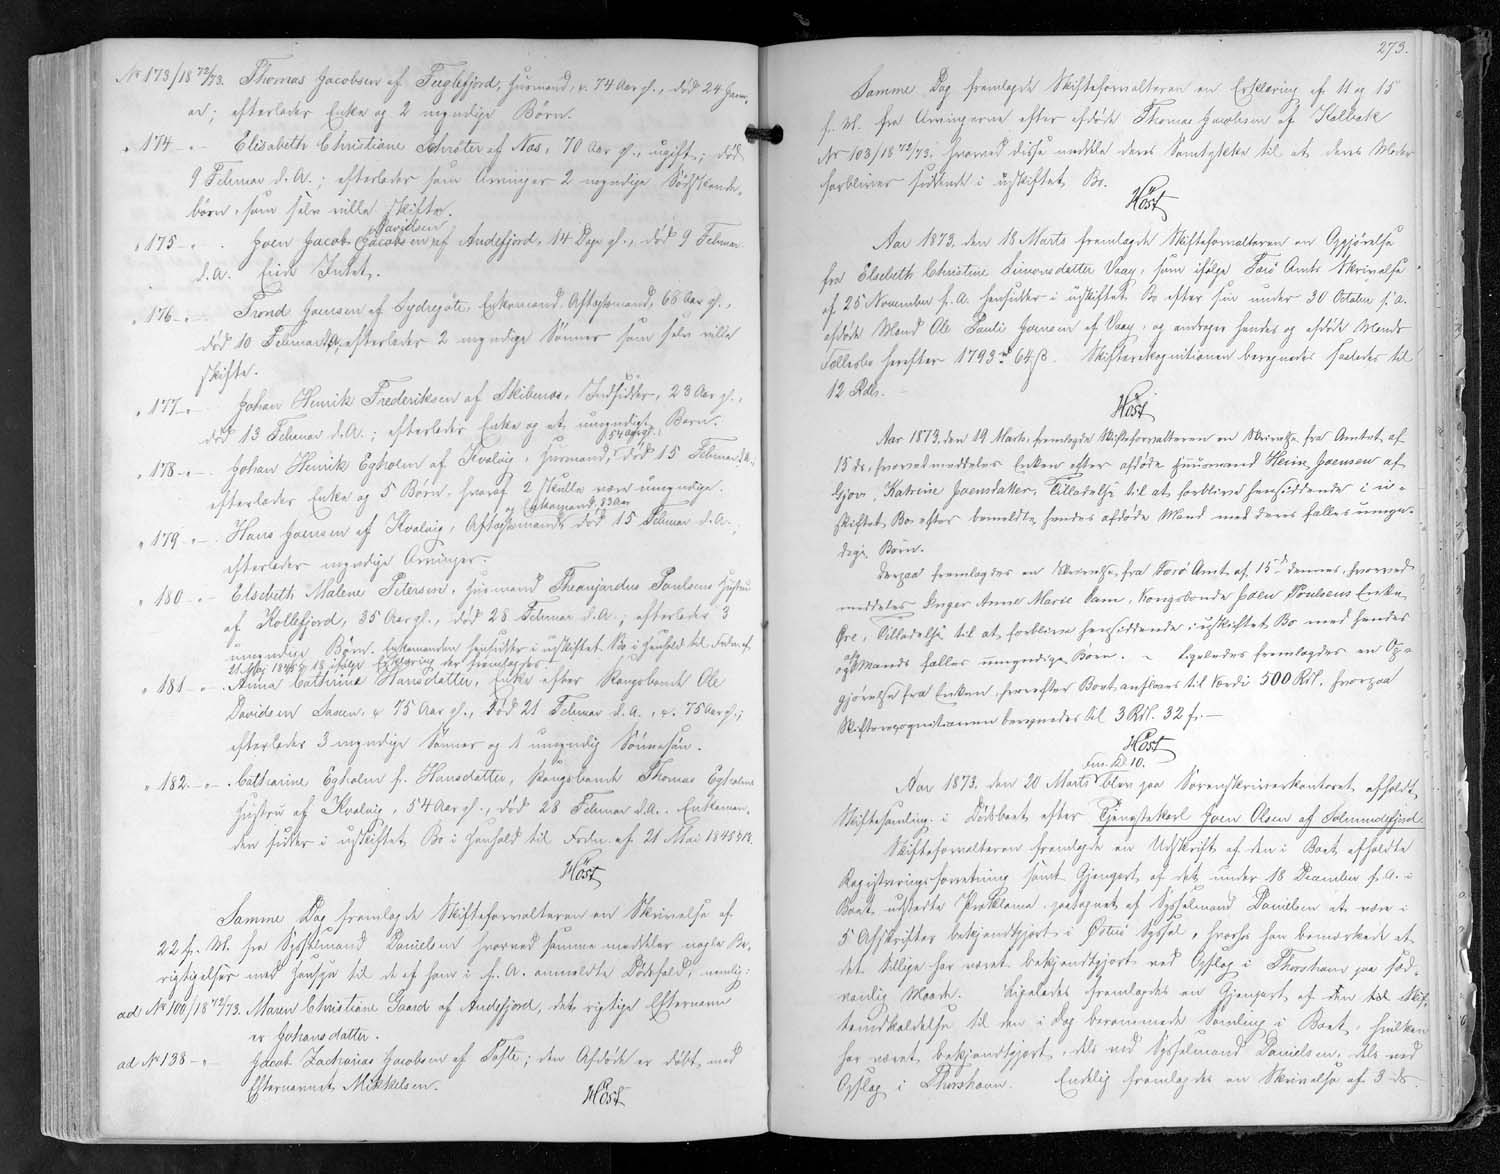 No 173/18 72/73. Thomas Jacobsen af Fuglefjord, Huusmand, v. 74 Aar gl., død 24 Janu-
ar; efterlader Enke og 2 myndige Børn.
" 174 - " - Elisabeth Christiane Schrøter af Næs, 70 Aar gl., ugift; død
9 Februar d.A.; efterlader som Arvinger 2 myndige Sødskende-
børn, som selv ville skifte.
Davidsen
" 175 - " - Joen Jacob Jacobsen af Andefjord, 14 Dage gl., død 9 Februar
d.A. Eiede Intet.
" 176 - " - Trond Joensen af Sydregøte, Enkemand, Aftægtsmand, 68 Aar gl.,
død 10 Februar d.A., efterlader 2 myndige Sønner som selv ville
skifte.
" 177 - " - Johan Henrik Frederiksen af Skibenæs, Indsidder, 23 Aar gl.,
død 13 Februar d.A.; efterlader Enke og et umyndigt Barn.
54 Aar gl.,
" 178 - " - Johan Henrik Egholm af Kvalvig, Huusmand, død 15 Februar d.A.;
efterlader Enke og 5 Børn, hvoraf 2 skulle være umyndige.
og Enkemand, 83 Aar
" 179 - " - Hans Joensen af Kvalvig, Aftægtsmand, død 15 Februar d.A.;
efterlader myndige Arvinger.
" 180 - " - Elsebeth Malene Petersen, Huusmand Thomas Poulsens Hustru
af Kollefjord, 35 Aar gl., død 28 Februar d.A.; efterlader 3
umyndige Børn. Enkemanden hensidder i uskiftet Bo i Henhold til Frdn. af
21 Mai 1845 § 18 ifølge Erklæring der fremlagdes.
" 181 - " - Anna Cathrine Hansdatter, Enke efter Kongsbonde Ole
Davidsen Saxen, v. 75 Aar gl., død 21 Februar d.A., v. 75 Aar gl.;
efterlader 3 myndige Sønner og 1 umyndig Sønnesøn.
" 182 - " - Catharine Egholm f. Hansdatter, Kongsbonde Thomas Egholms
Hustru af Kvalvig, 54 Aar gl., død 28 Februar d.A. Enkeman-
den sidder i uskiftet Bo i Henhold til Frdn. af 21 Mai 1845 § 18.
Höst
Samme Dag fremlagde Skifteforvalteren en Skrivelse af
22 f. M. fra Sysselmand Danielsen hvorved samme meddeler nogle Be-
rigtigelser med Hensyn til de af ham i f. A. anmeldte Dødsfald, nemlig:
ad No 100/18 72/73. Maren Christiane Gaard af Andefjord, det rigtige Efternavn
er Johansdatter.
ad No 138 - " Jacob Zacharias Jacobsen af Tofte; den Afdøde er døbt med
Efternavnet Mikkelsen.
Höst
273.
Samme Dag fremlagde Skifteforvalteren en Erklæring af 11 og 15
f. M. fra Arvingerne efter afdøde Thomas Jacobsen af Kolbak
No 103/18 72/73. hvorved disse meddele deres Samtykke til at deres Moder
forbliver siddende i uskiftet Bo.
Höst
Aar 1873, den 18 Marts fremlagde Skifteforvalteren en Opgjørelse
fra Elsebeth Christine Simonsdatter Vaag, som ifølge Færø Amts Skrivelse
af 25 November f. A. hensidder i uskiftet Bo efter sin under 30 October s. A.
afdøde Mand Ole Pauli Joensen af Vaag, og andrager hendes og afdøde Mands
Fællesbo herefter 1793 rd 64 ß. Skifterekognitionen beregnedes saaledes til
12 Rdlr.
Höst
Aar 1873, den 19 Marts, fremlagde Skifteforvalteren en Skrivelse fra Amtet af
15 ds., hvorved meddeles Enken efter afdøde Huusmand Heine Joensen af
Gjov, Katrine Joensdatter, Tilladelse til at forblive hensiddende i u-
skiftet Bo efter bemeldte hendes afdøde Mand med deres fælles umyn-
dige Børn.
Derpaa fremlagdes en Skrivelse fra Færø Amt af 15de dennes, hvorved
meddeles Inger Anne Marie Dam, Kongsbonde Joen Poulsens Enke
Øre, Tilladelse til at forblive hensiddende i uskiftet Bo med hendes
og Mands fælles umyndige Børn. - Ligeledes fremlagdes en Op-
gjørelse fra Enken, hvorefter Boet ansloges til Værdi 500 Rdl., hvorpaa
Skifterekognitionen beregnedes til 3 Rdl. 32 ß. -
Höst
Fm. Kl. 10.
Aar 1873, den 20 Marts blev paa Sorenskriverkontoret afholdt
Skiftesamling i Dødsboet efter Tjenestekarl Joen Olsen af Solmundefjord.
Skifteforvalteren fremlagde en Udskrift af den i Boet afholdte
Registreringsforretning samt Gjenpart af det under 18 December f. A. i
Boet udstedte Proklama, paategnet af Sysselmand Danielsen at være i
5 Afskrifter bekjendtgjort i Østerø Syssel, hvorhos han bemærkede at
det tillige har været bekjendtgjort ved Opslag i Thorshavn paa sæd-
vanlig Maade. Ligeledes fremlagdes en Gjenpart af den Skif-
teindkaldelse til den i Dag berammede Samling i Boet, hvilken
har været bekjendtgjort, dels ved Sysselmand Danielsen, dels ved
Opslag i Thorshavn. Endelig fremlagdes en Skrivelse af 3 ds.